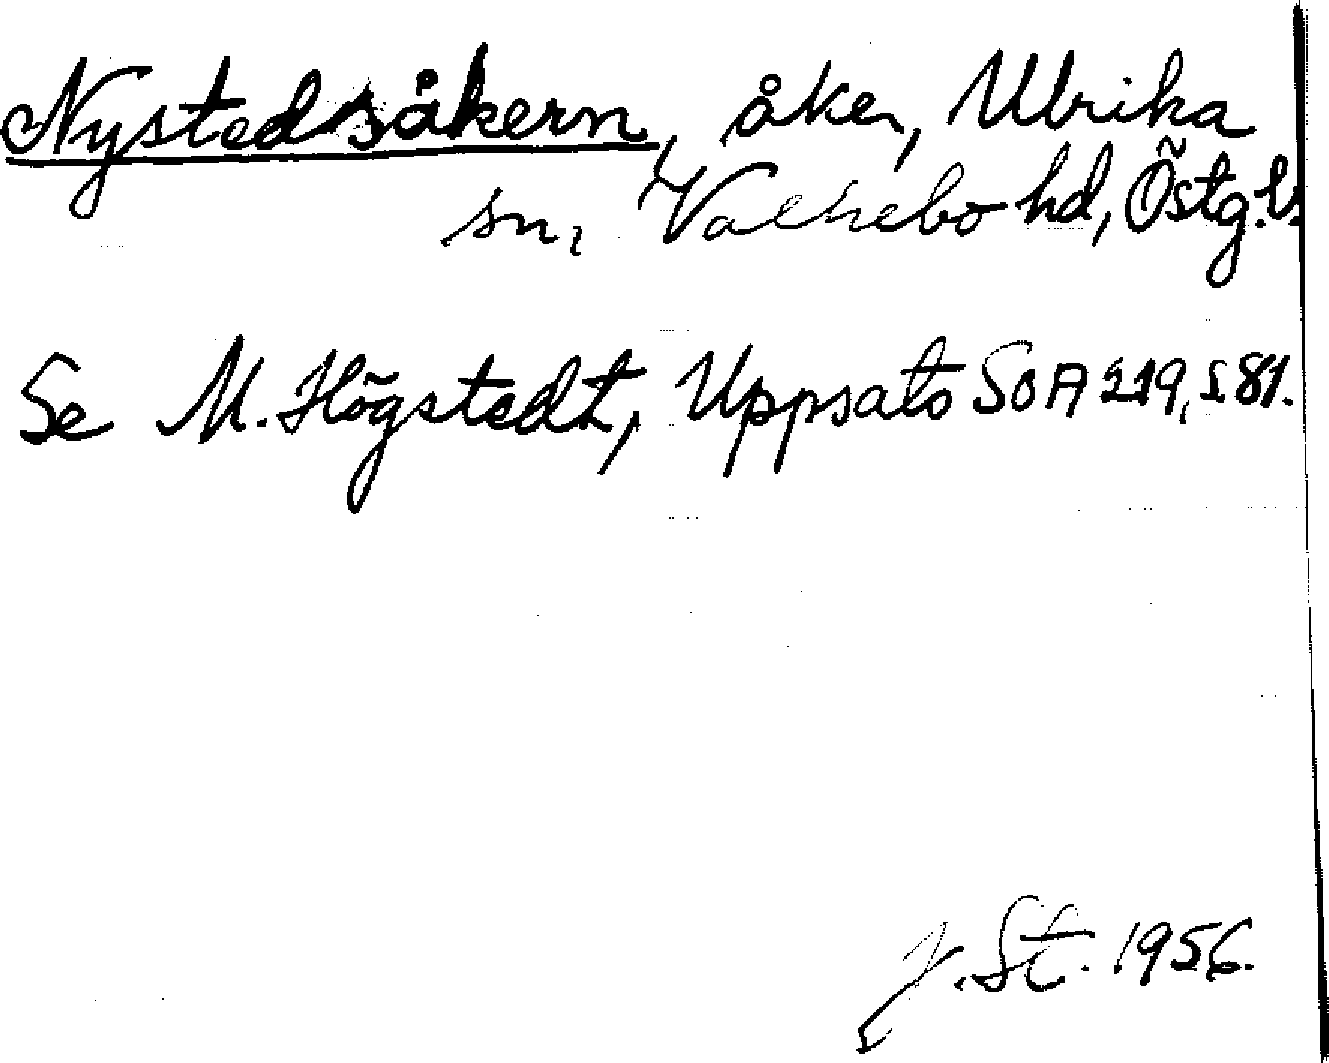 Nystedsåkern, åker, Ulrika
sn, Valkebo hd, Östg.l.
Se M. Högstedt, Uppsats SOA 219, s 81.
J. St. 1956.